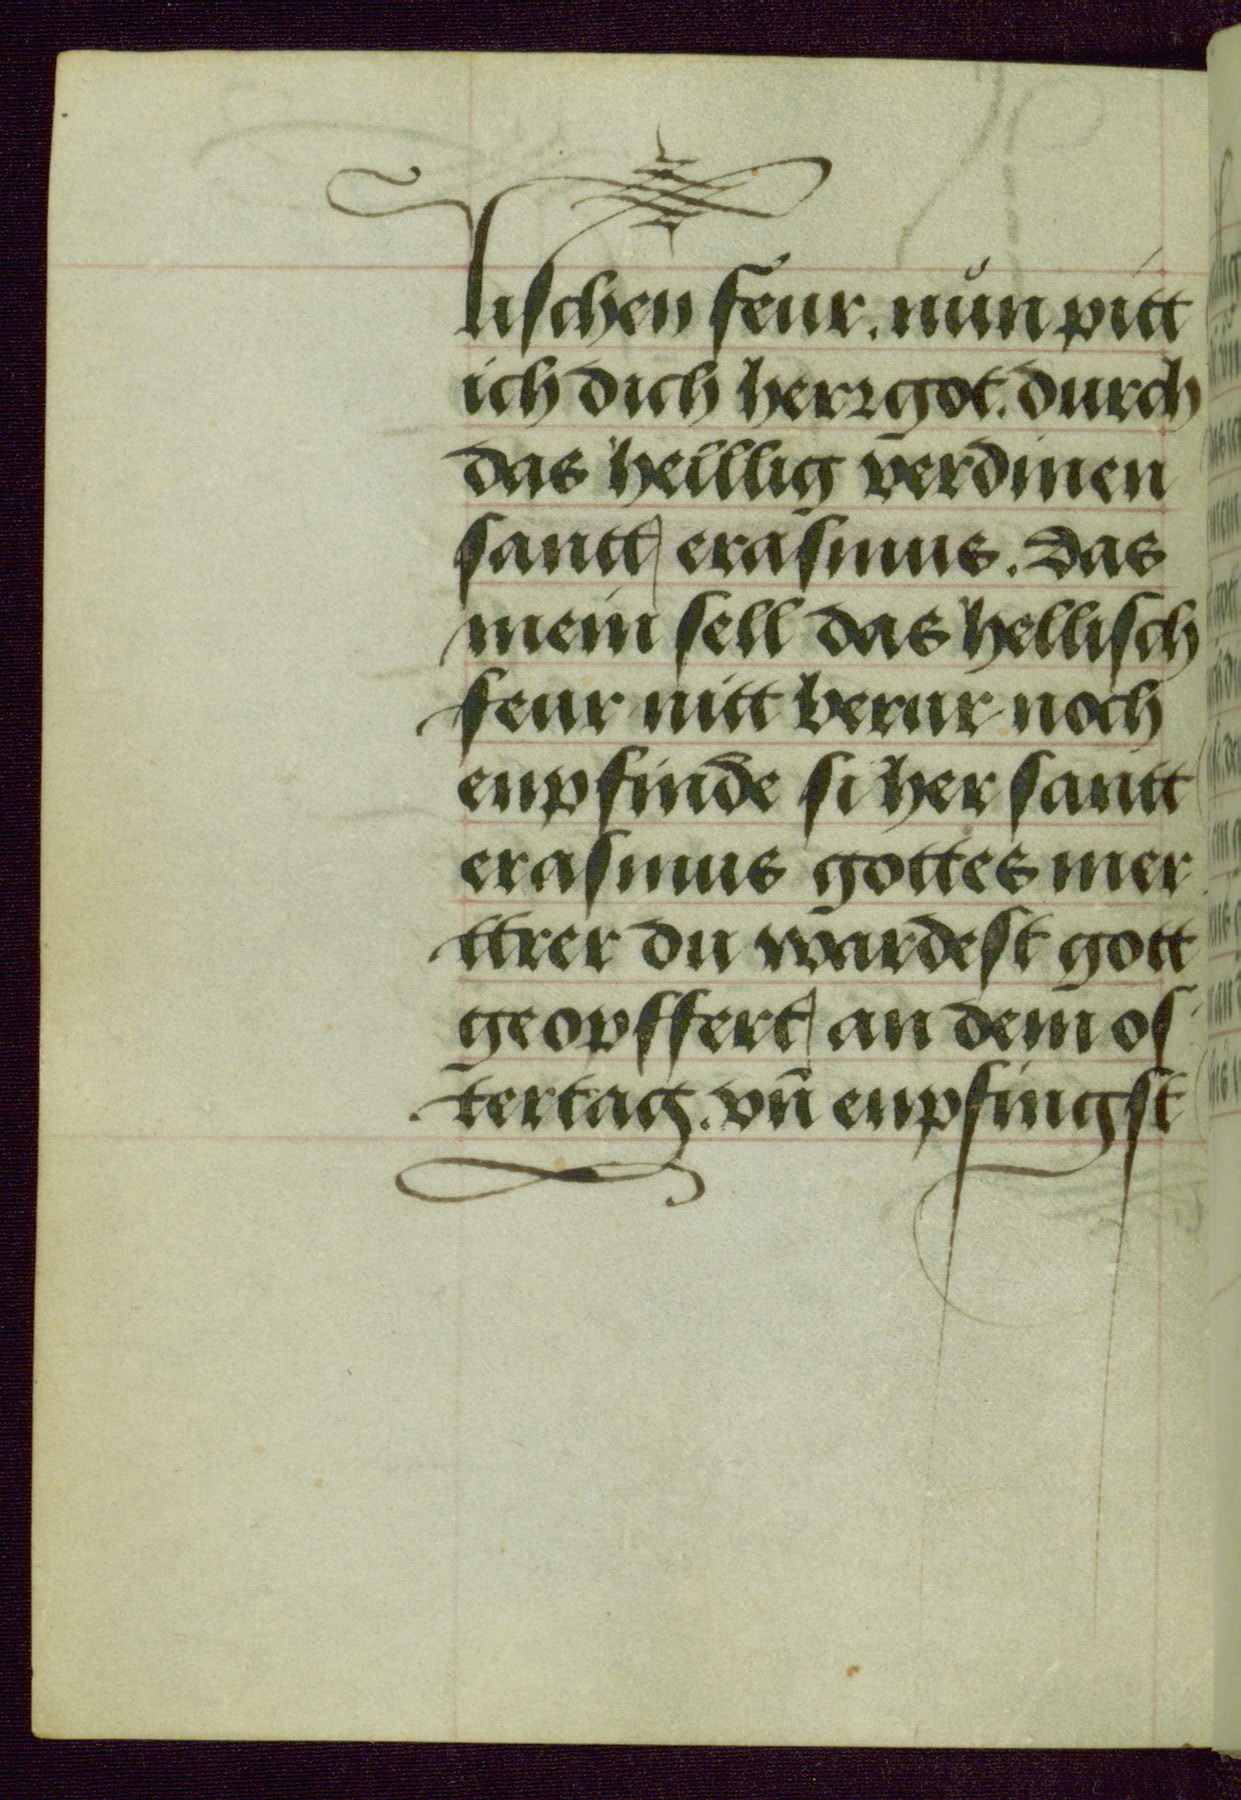 lischen feur. nůn pitt
ich dich herꝛgot. durch
das heillig verdinen
santt erasmus. das
mein sell das hellisch
feur nitt berur noch
enpfinde si her santt
erasmus gottes mer
ttrer du wardest gott
geopffert an dem os
tertag. vn̄ enpfingst